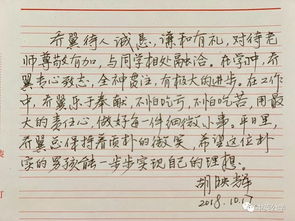 乔翼待人诚恳，谦和有礼，对待老
师尊敬有加，与同学相处融洽。在学习中，乔
翼专心致志，全神贯注，有极大的进步。在工作
中，乔翼乐于奉献，不怕吃亏，不怕吃苦，用最
大的责任心，做好每一件细微小事。平日里，
乔翼总保持着质朴的微笑，希望这位朴
实的男孩能一步步实现自己的理想。
胡映辉
2018.10.17